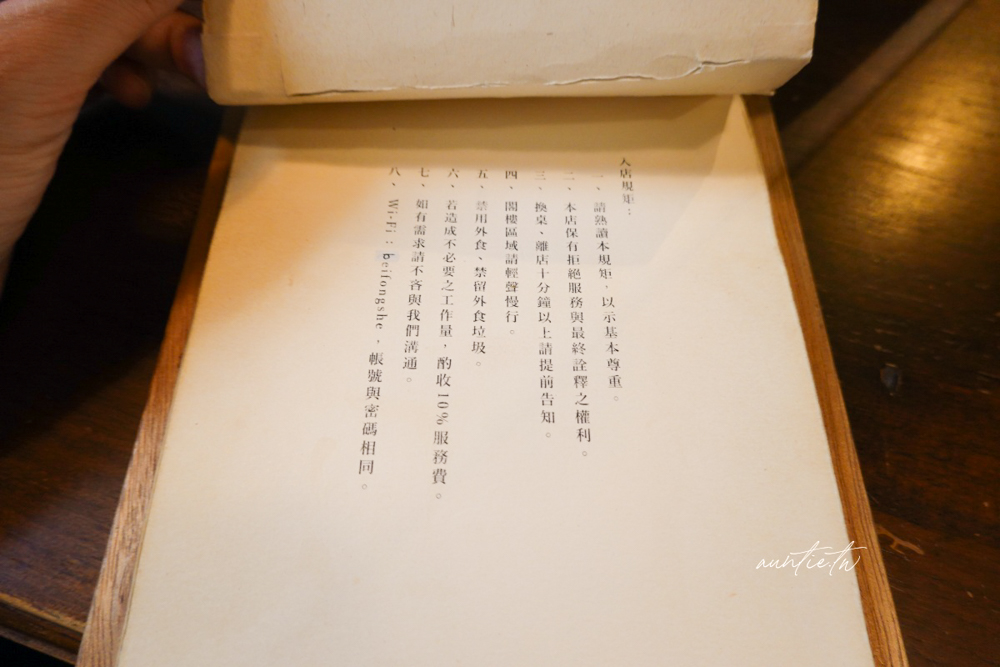 入店規矩：
一、請熟讀本規矩，以示基本尊重。
二、本店保有拒絕服務與最終詮釋之權利。
三、換桌、離店十分鐘以上請提前告知。
四、閣樓區域請輕聲慢行。
五、禁用外食、禁留外食垃圾。
六、若造成不必要之工作量，酌收10%服務費。
七、如有需求請不吝與我們溝通。
八、Wi-Fi：beifongshe，帳號與密碼相同。
auntie.tw